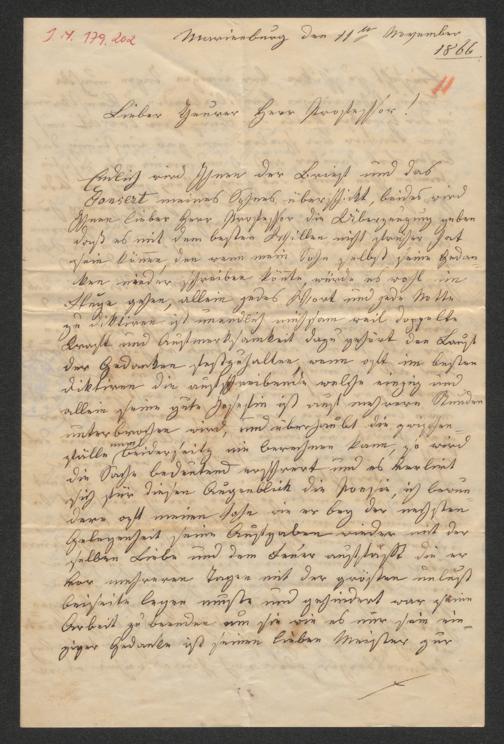 I. N. 179.202
Marienburg den 11ten November
1866
11
Lieber theurer Herr Professor!
Endlich wird Ihnen der Brief und das
Konzert meines Sohnes überschickt, beides wird
Ihnen lieber Herr Professor die Überzeugung geben
daß es mit dem besten Willen nicht früher hat
sein könen, den wenn mein Sohn selbst seine Gedan-
ken nieder schreiben könte würde es wohl im
Fluge gehen, allein jedes Wort und jede Notte
zu diktiren ist unendlich mühsam weil doppelte
Kraft und Aufmerksamkeit dazu gehört den Lauf
der Gedanken festzuhalten, wenn oft im besten
diktiren die aufschreibende welche einzig und
allein seine gute Josefin ist auf mehrere Stunden
unterbrochen wird, und überhaubt die zwischen-
fälle man beiderseitz nie berechnen kann, so wird
die Sache bedeutend erschwert und es verliert
sich für diesen Augenblick die Poesie, ich bewun
dere oft meinen Sohn wie er bey der nechsten
Gelegenheit seine Aufgaben wieder mit der
selben Liebe und dem Feuer auffasst die er
vor mehreren Tagen mit der grösten unlust
beiseite legen muste und gehindert war seine
Arbeit zu beenden um sie wie es nur sein ein-
ziger Gedanke ist seinen lieben Meister zur